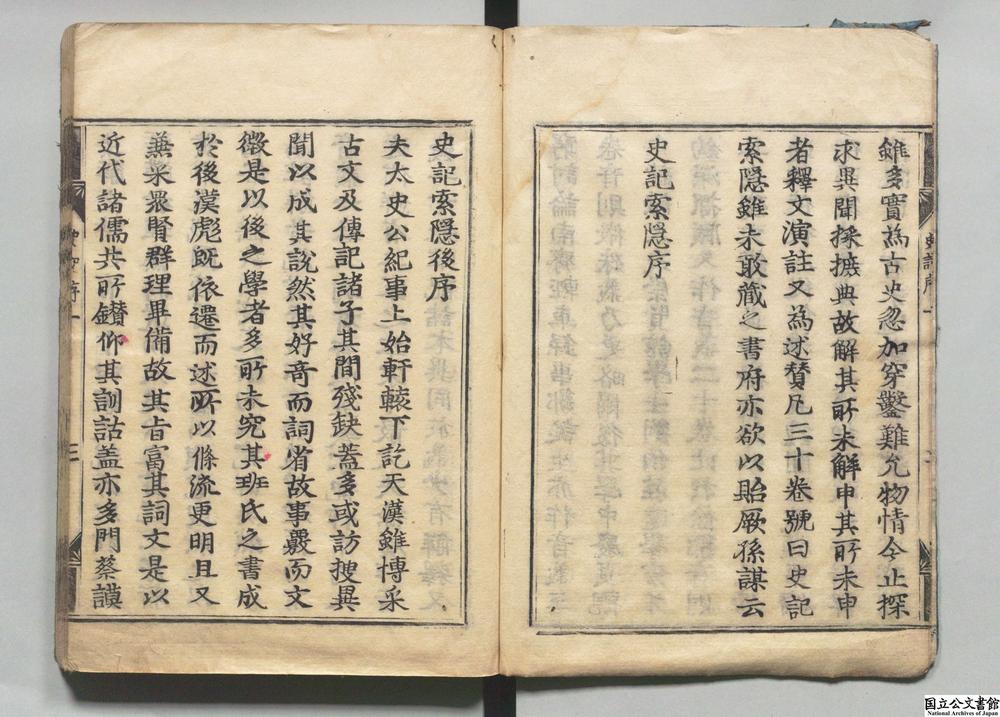 雖多實爲古史忽加穿鑿難允物情今止探
求異聞採摭典故解其所未解申其所未申
者釋文演註又為述賛凡三十卷號曰史記
索隱雖未敢藏之書府亦欲以貽厥孫謀云
史記索隱序
史記序一
史記索隱後序
夫太史公紀事上始軒轅下訖天漢雖博采
古文及傳記諸子其間殘缺蓋多或訪搜異
聞以成其說然其好奇而詞省故事覈而文
微是以後之學者多所未究其班氏之書成
於後漢彪旣依遷而述所以條流更明且又
兼采衆賢群理畢備故其旨富其詞文是以
近代諸儒共所鑚仰其訓詁盖亦多門蔡謨
史記序一
三
国立公文書館
National Archives of Japan